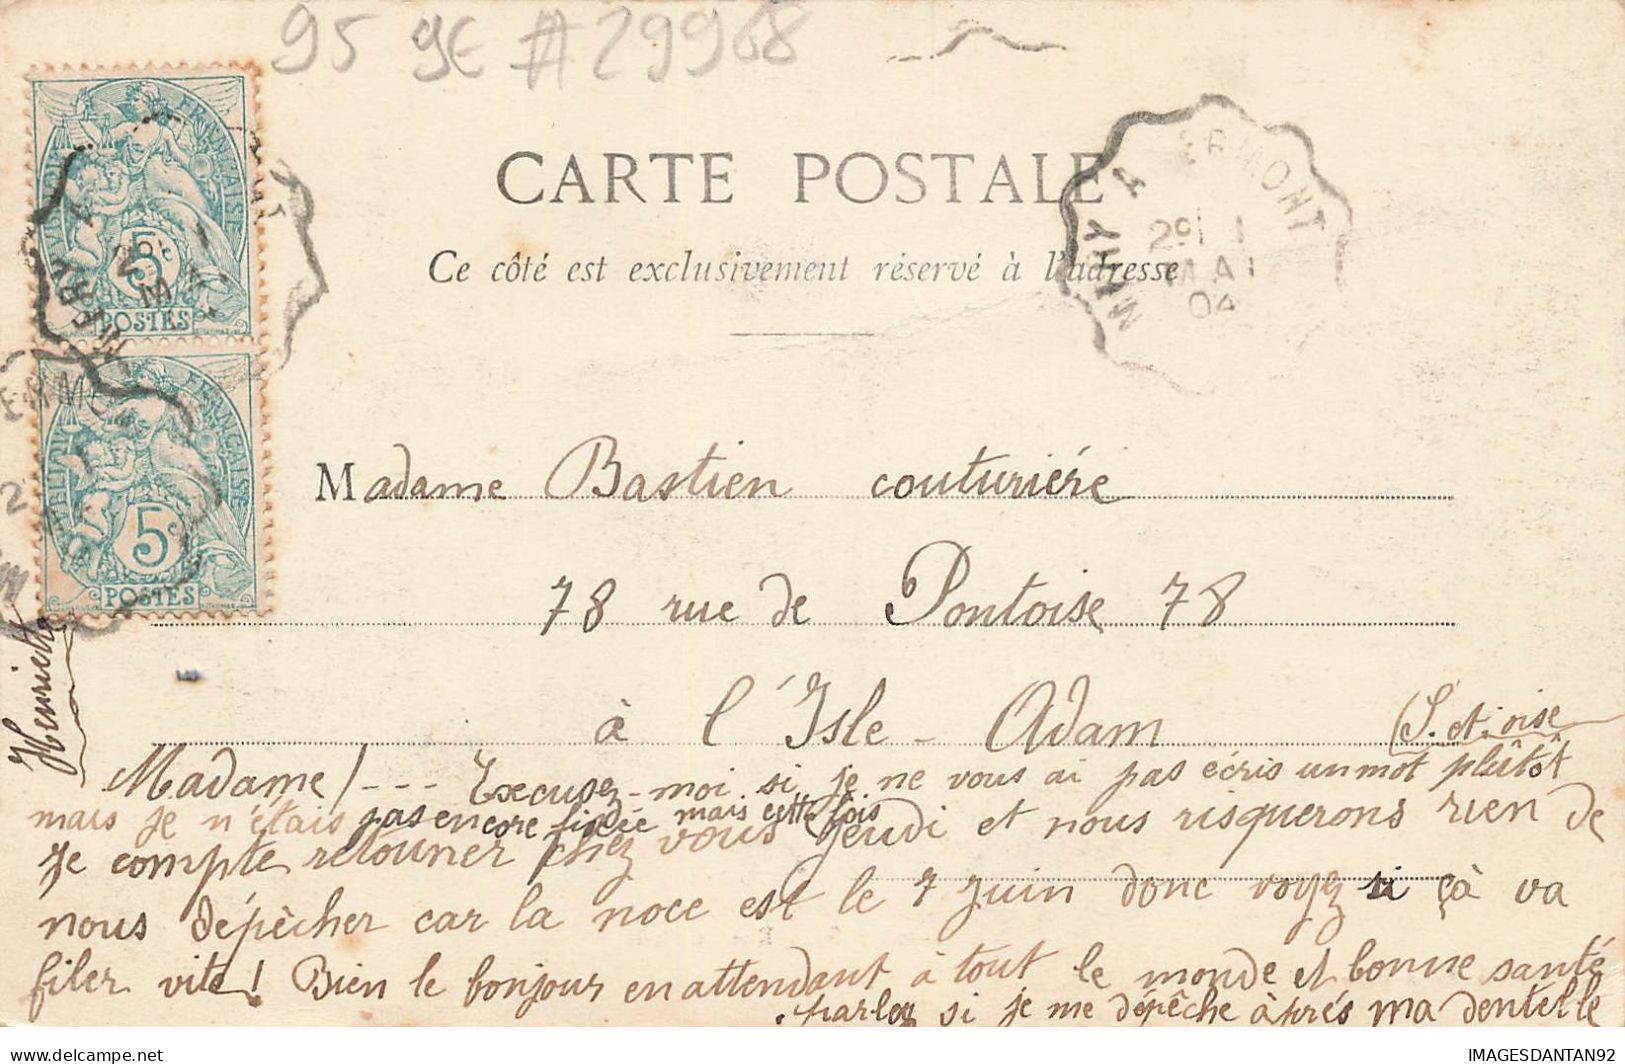 95 9E #29968
CARTE POSTALE
Ce côté est exclusivement réservé à l'adresse
FRANÇAISE
5c
POSTES
FRANÇAISE
5c
POSTES
A ERMONT
29 MAI
04
Madame Bastien couturiére
78 rue de Pontoise 78
à l'Isle-Adam (S. et. oise
Henriette
Madame / --- Excusez-moi si je ne vous ai pas écris un mot plûtôt
mais je n'étais pas encore fixée mais cette fois
je compte retouner chez vous jeudi et nous risquerons rien de
nous dépècher car la noce est le 7 Juin donc voyez si çà va
filer vite! Bien le bonjour en attendant à tout le monde et bonne santé
parlez si je me dépêche àprés ma dentelle
delcampe.net
IMAGESDANTAN92